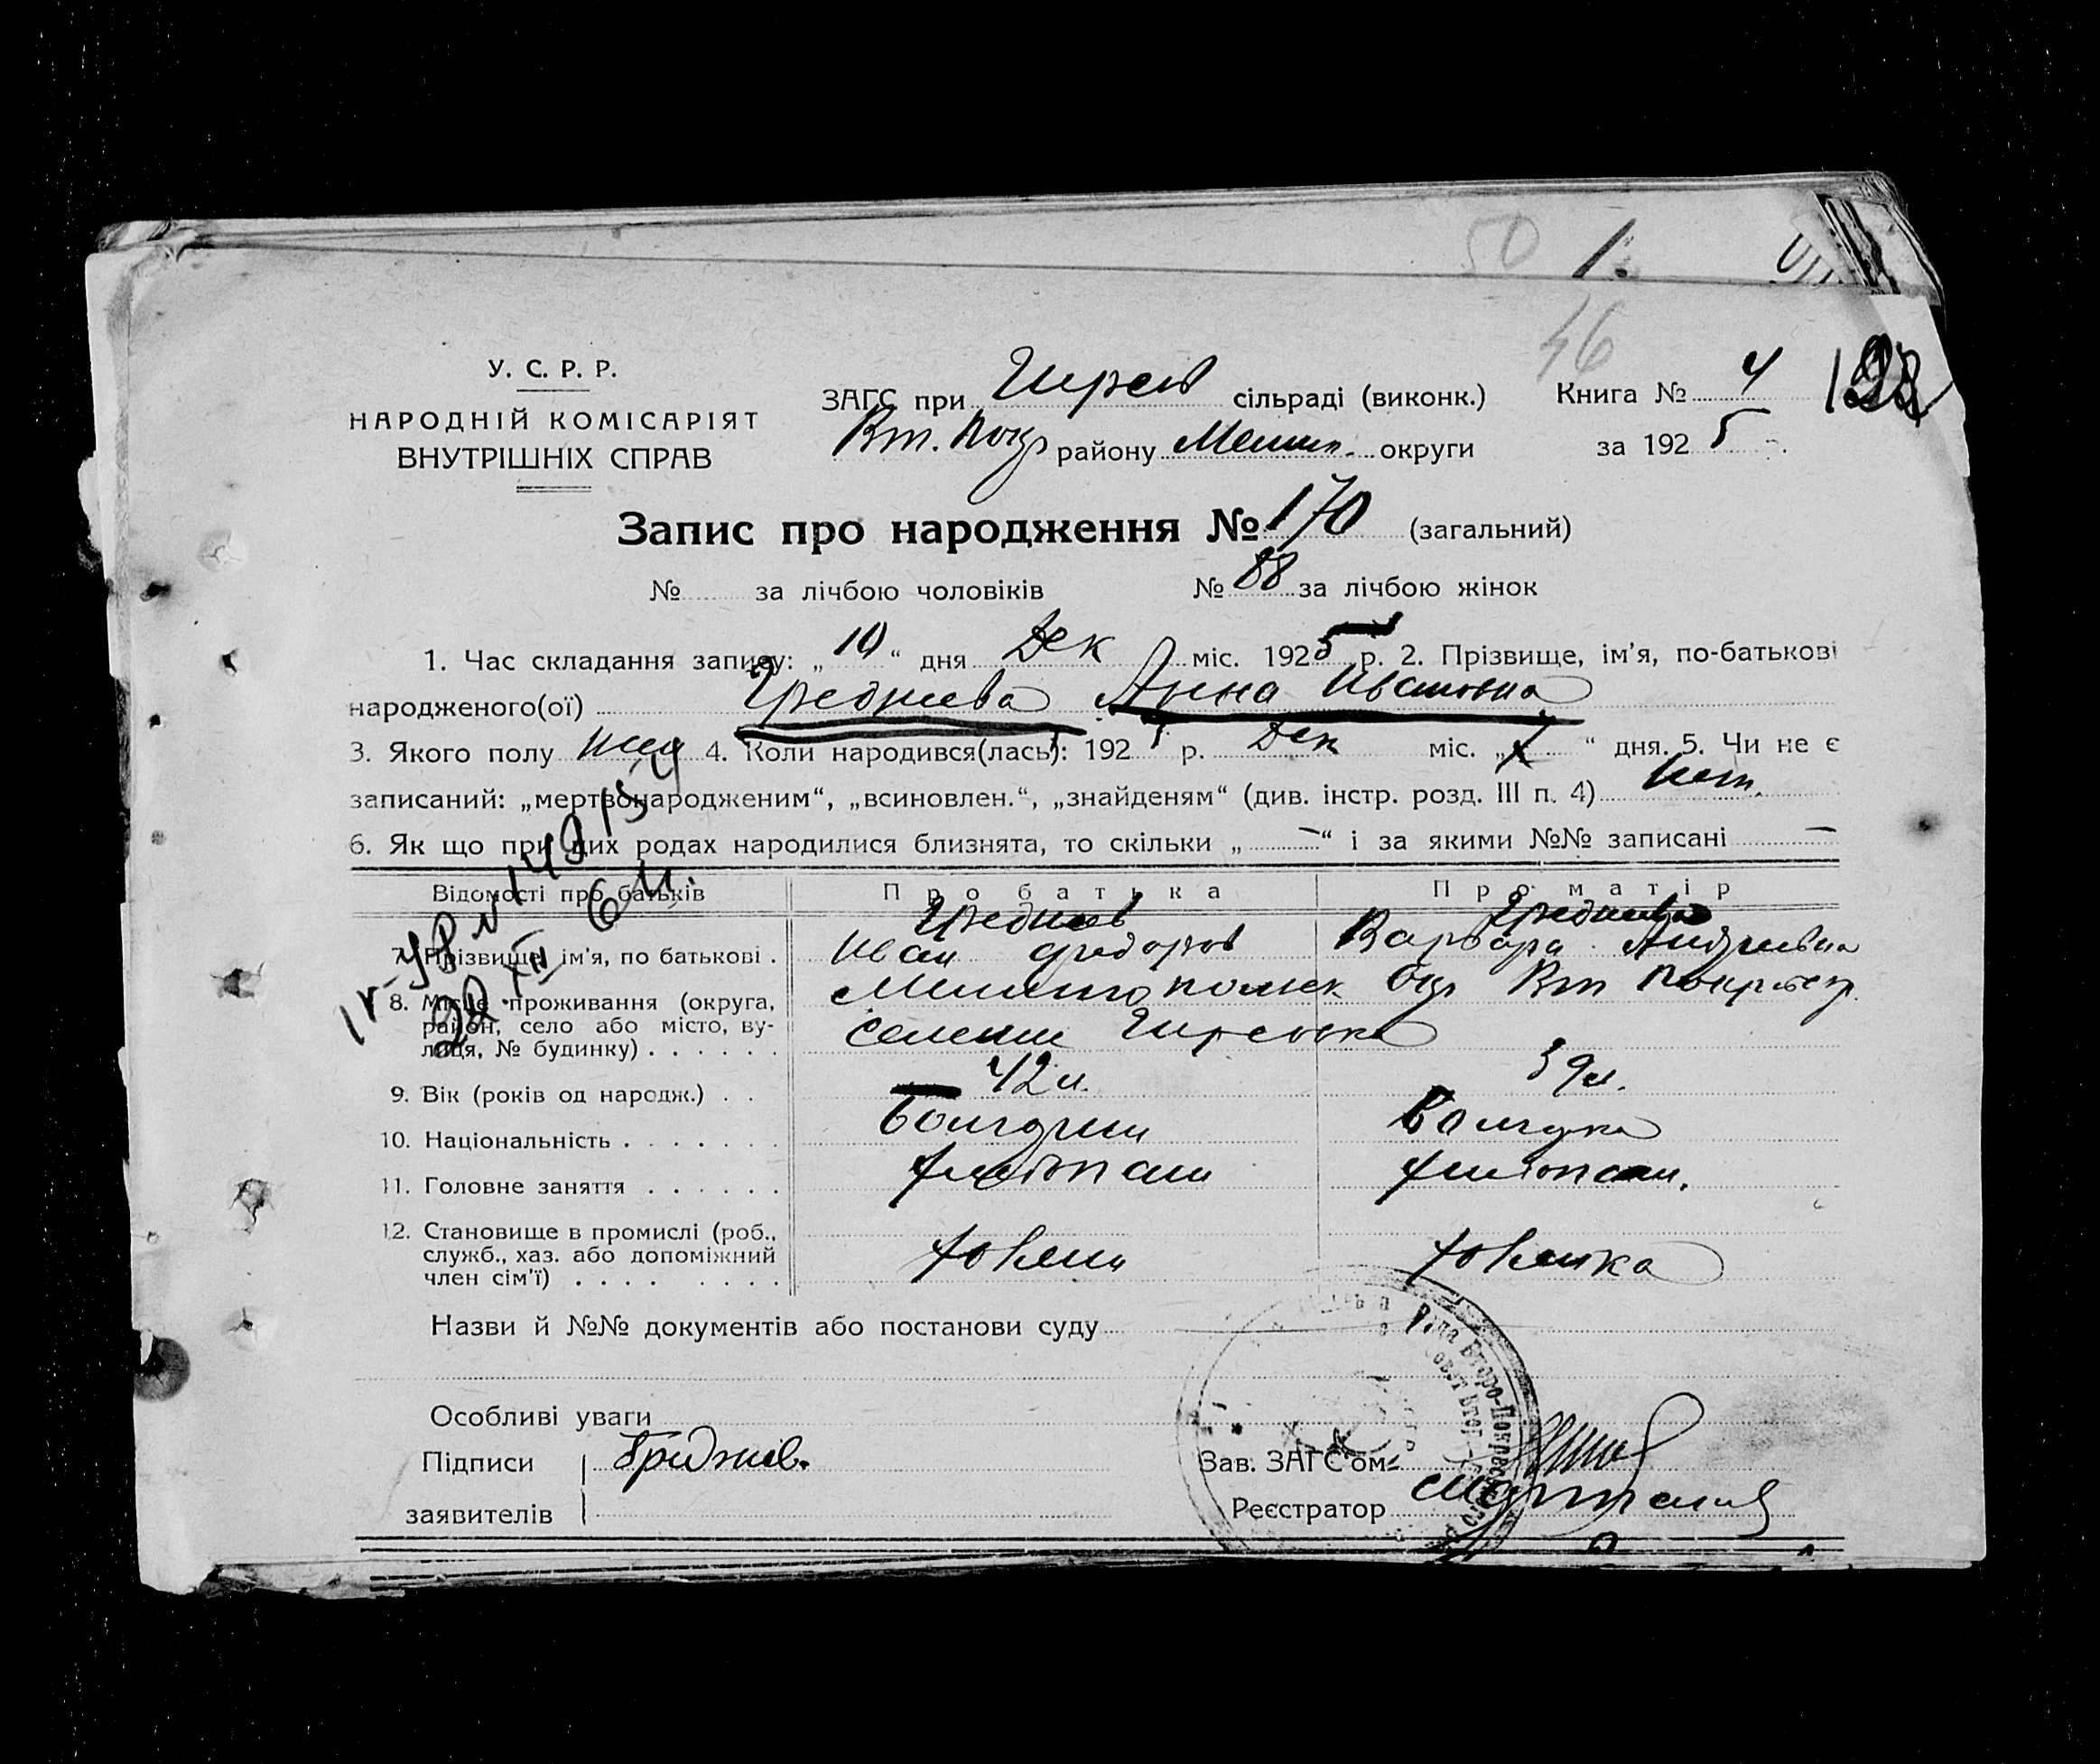 50 1.
46
У. С. Р. Р.
НАРОДНІЙ КОМІСАРІЯТ
ВНУТРІШНІХ СПРАВ
ЗАГС при Гирсов сільраді (виконк.)
Вт. Покр району Мелит. округи
Книга № 4
за 1925
Запис про народження № 170 (загальний)
№ за лічбою чоловіків № 88 за лічбою жінок
1. Час складання запису: „10“ дня Дек міс. 1925 р. 2. Прізвище, ім'я, по-батькові
народженого(ої) Греднева Анна Ивановна
3. Якого полу жен 4. Коли народився(лась): 1925 р. Дек міс. „7“ дня. 5. Чи не є
записаний: „мертвонародженим“, „всиновлен.“, „знайденям“ (див. інстр. розд. III п. 4) Нет.
6. Як що при цих родах народилися близнята, то скільки „—“ і за якими №№ записані —
Відомості про батьків Про батька Про матір
Греднев Греднева
7. Прізвище, ім'я, по батькові . Иван Федоров Варвара Андреевна
8. Місце проживання (округа, район, село або місто, вулиця, № будинку) . . . . . . Мелитопольск Окр Вт Покровск
селении Гирсовка
9. Вік (років од народж.) . . 42 л. 39 л.
10. Національність . . . . . . . Болгарин Болгарка
11. Головне заняття . . . . . . хлебопаш хлебопаш.
12. Становище в промислі (роб., служб., хаз. або допоміжний член сім'ї) . . . . . . . . хозяин хозяйка
Назви й №№ документів або постанови суду
Особливі уваги
Підписи Греднев.
заявителів
Зав. ЗАГС'ом
Реєстратор